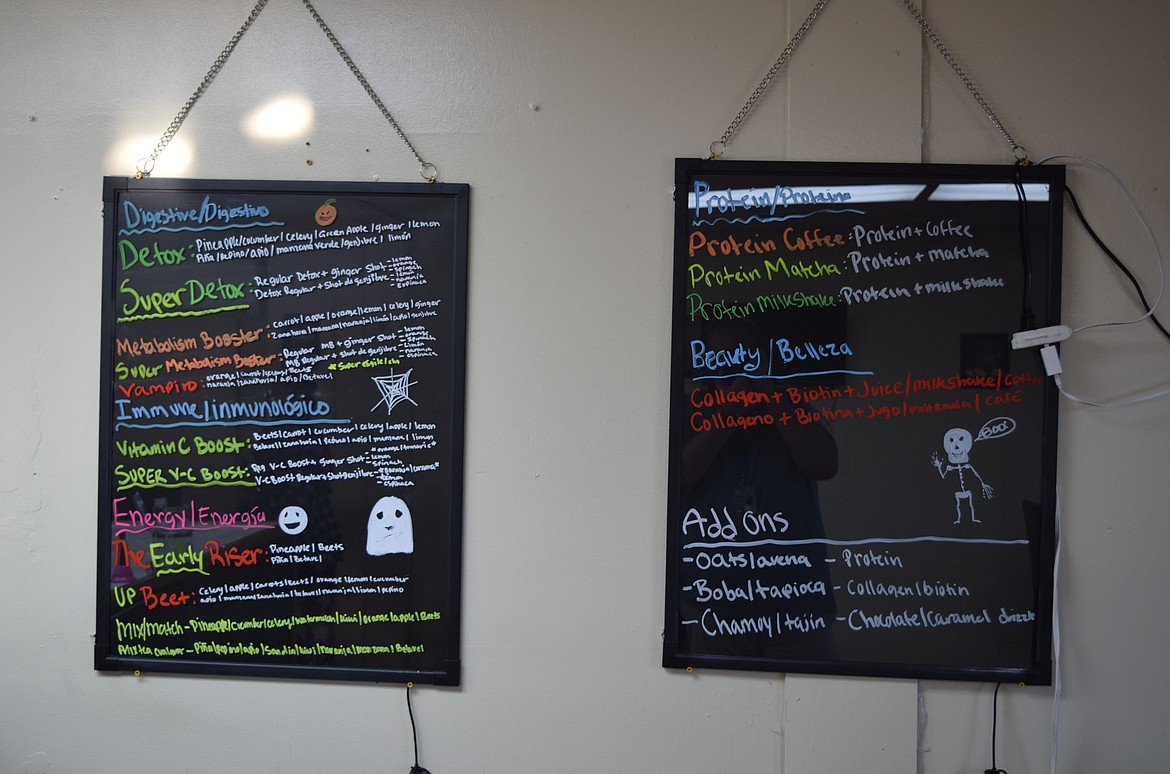 Digestive/Digestivo
Detox: Pineapple/cucumber/celery/Green Apple/ginger/lemon
Piña/pepino/apio/manzana verde/genjibre/limón
Super Detox: Regular Detox + ginger Shot - lemon
- orange
- spinach
Detox Regular + Shot de genjibre - limon
- naranja
espinaca
Metabolism Booster: carrot/apple/orange/lemon/celery/ginger
Zanahoria/manzana/naranja/limon/apio/genjibre
Super Metabolism Booster: Regular MB + ginger Shot - lemon
- orange
- spinach
MB Regular + Shot de genjibre - limon
- naranja
- espinaca
Vampiro: orange/carrot/celery/Beets
naranja/zanahoria/apio/Betavel
Immune/inmunológico
Vitamin C Boost: Beets/carrot/cucumber/celery/apple/lemon
Betavel/zanahoria/pepino/apio/manzana/limon
SUPER V-C Boost: Reg V-C Boost + ginger Shot - lemon
*orange/tumeric*
spinach
V-C Boost Regular + Shot genjibre
- limon
espinaca
Energy/Energía
The Early Riser: Pineapple/Beets
Piña/Betavel
UP Beet: Celery/apple/carrots/Beets/orange/lemon/cucumber
apio/manzana/zanahoria/betavel/naranja/limon/pepino
Mix/match - Pineapple/cucumber/celery/watermelon/kiwi/orange/apple/Beets
- Piña/pepino/apio/Sandia/kiwi/naranja/manzana/Betavel
Protein/Proteina
Protein Coffee: Protein + Coffee
Protein Matcha: Protein + matcha
Protein milkshake: Protein + milkshake
Beauty/Belleza
Collagen + Biotin + Juice/milkshake/coffee
Collageno + Biotina + Jugo/malteada/café
BOO!
Add ons
- Oats/avena - Protein
- Boba/tapioca - Collagen/biotin
- Chamoy/tajin - Chocolate/Caramel drizzle